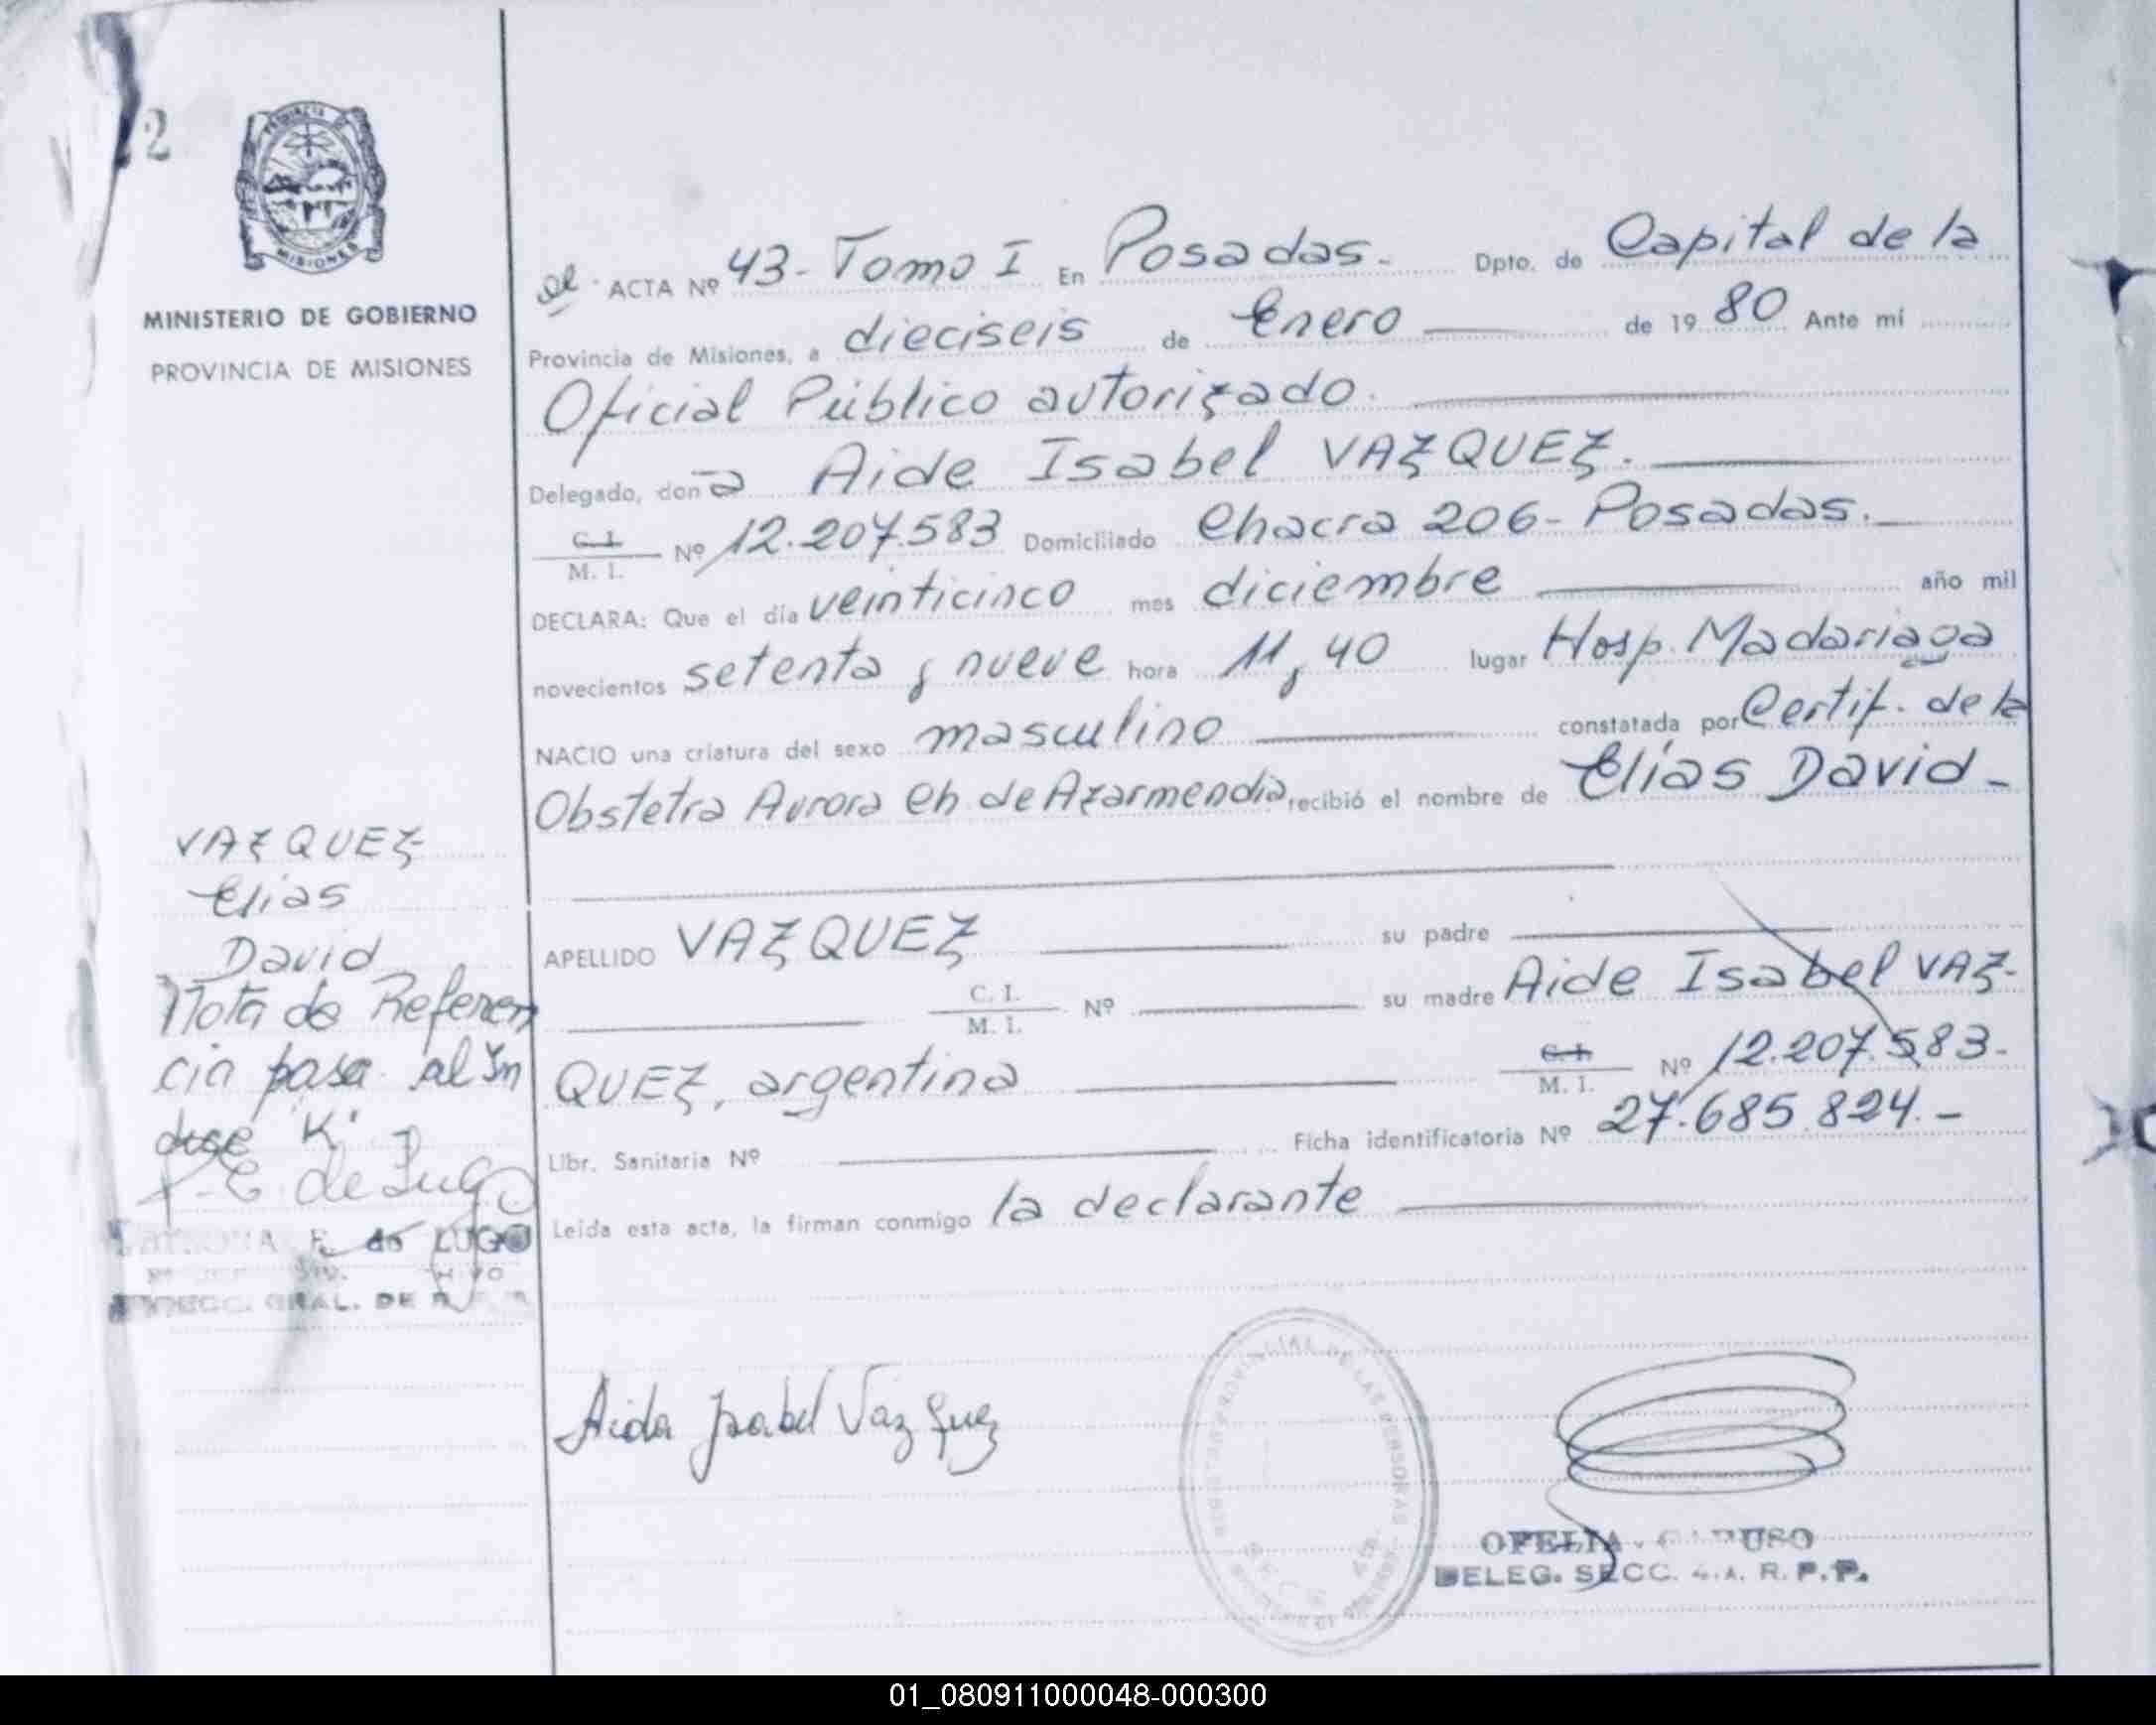 2
PROVINCIA DE
MISIONES
MINISTERIO DE GOBIERNO
PROVINCIA DE MISIONES
ACTA Nº 43- Tomo I En Posadas.- Dpto. de Capital de la
Provincia de Misiones, a dieciseis de Enero de 1980 Ante mí
Oficial Público autorizado.
Delegado, don a Aide Isabel VAZQUEZ.
C. I.
M. I. Nº 12.207.583 Domiciliado Chacra 206- Posadas.
DECLARA: Que el día veinticinco mes diciembre año mil
novecientos setenta y nueve hora 11,40 lugar Hosp. Madariaga
NACIO una criatura del sexo masculino constatada por Certif. de la
Obstetra Aurora Ch. de Azarmendia recibió el nombre de Elías David-
APELLIDO VAZQUEZ su padre
C. I.
M. I. Nº su madre Aide Isabel VAZ-
QUEZ, argentina C. I.
M. I. Nº 12.207.583-
Libr. Sanitaria Nº Ficha identificatoria Nº 27.685.824.-
Leída esta acta, la firman conmigo la declarante
VAZQUEZ
Elias
David
Nota de Referen
cia pasa al Ín
dice "K"
E. de Lugo
F. de LUGO
DIRECC. GRAL. DE
Aida Isabel Vazquez
PROVINCIAL DE LAS PERSONAS
OFELIA CARUSO
DELEG. SECC. 4.A. R. P. P.
01_080911000048-000300